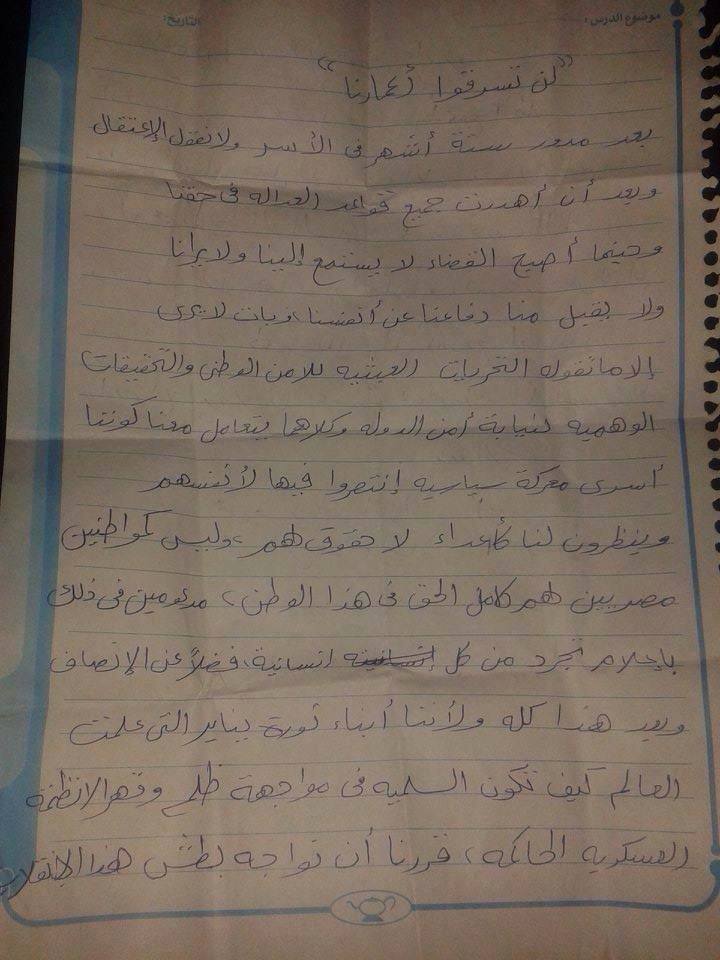 موضوع الدرس: التاريخ:
"لن تسرقوا أعمارنا"
بعد مرور ستة أشهر فى الأسر ولا نقول الإعتقال
وبعد أن أهدرت جميع قواعد العداله فى حقنا
وحينما أصبح القضاء لا يستمع إلينا ولا يرانا
ولا يقبل منا دفاعنا عن أنفسنا، وبات لا يرى
إلا ما تقوله التحريات العبثيه للامن الوطنى والتحقيقات
الوهميه لنيابة أمن الدوله وكلاهما يتعامل معنا كوننا
أسرى معركة سياسيه إنتصروا فيها لأنفسهم
وينظرون لنا كأعداء لا حقوق لهم، وليس كمواطنين
مصريين لهم كامل الحق فى هذا الوطن، مدعومين فى ذلك
بإعلام تجرد من كل إنسانية، فضلاً عن الإنصاف
وبعد هذا كله ولأننا أبناء ثورة يناير التى علمت
العالم كيف تكون السلميه فى مواجهة ظلم وقهر الانظمة
العسكريه الحاكمه، قررنا أن نواجه بطش هذا الإنقلاب